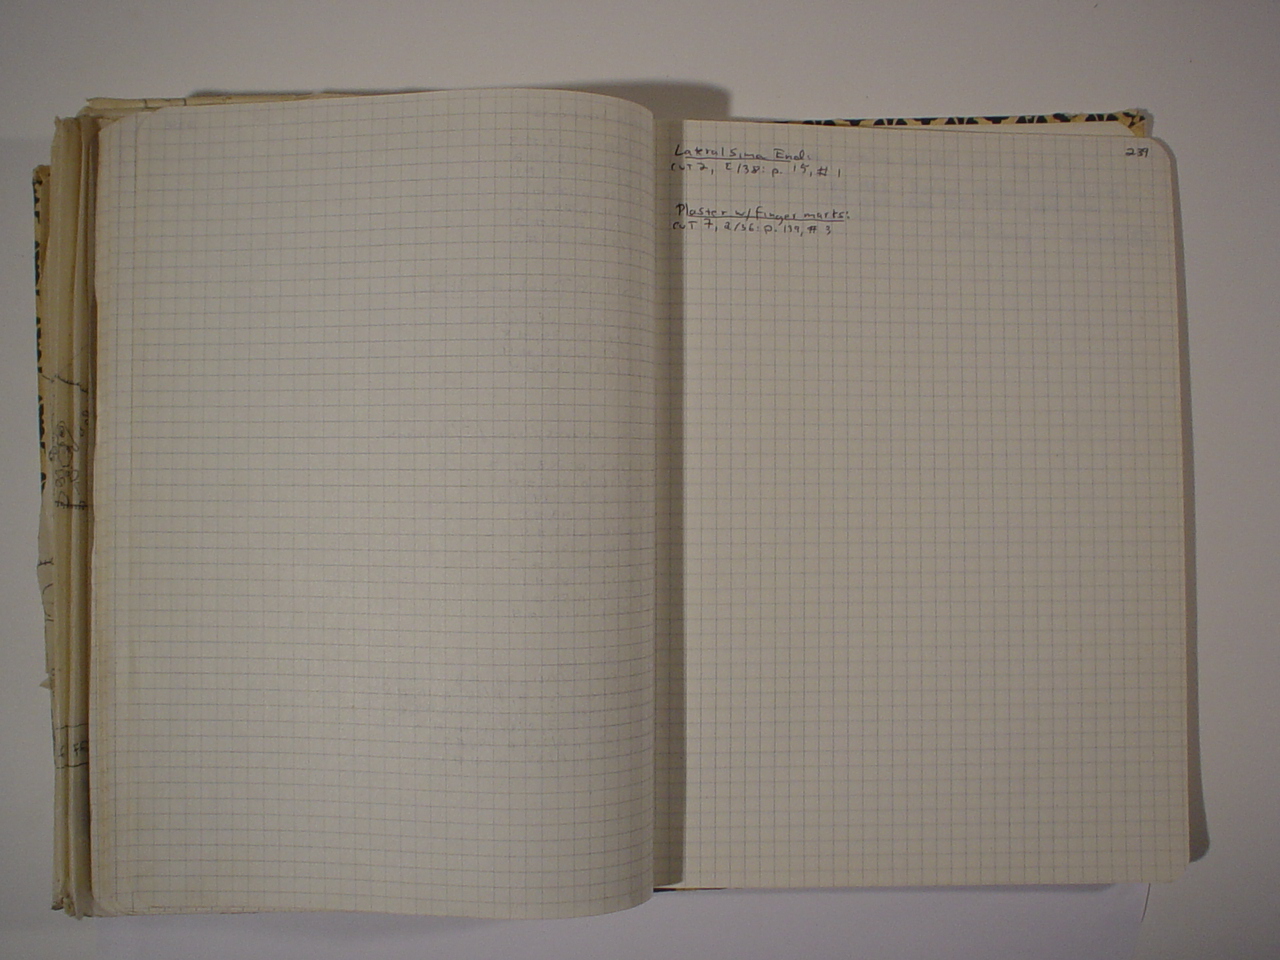 239
Lateral Sima End:
CUT 2, C/38: p. 15, # 1
Plaster w/ Finger marks:
CUT 7, 2/36: p. 139, # 3